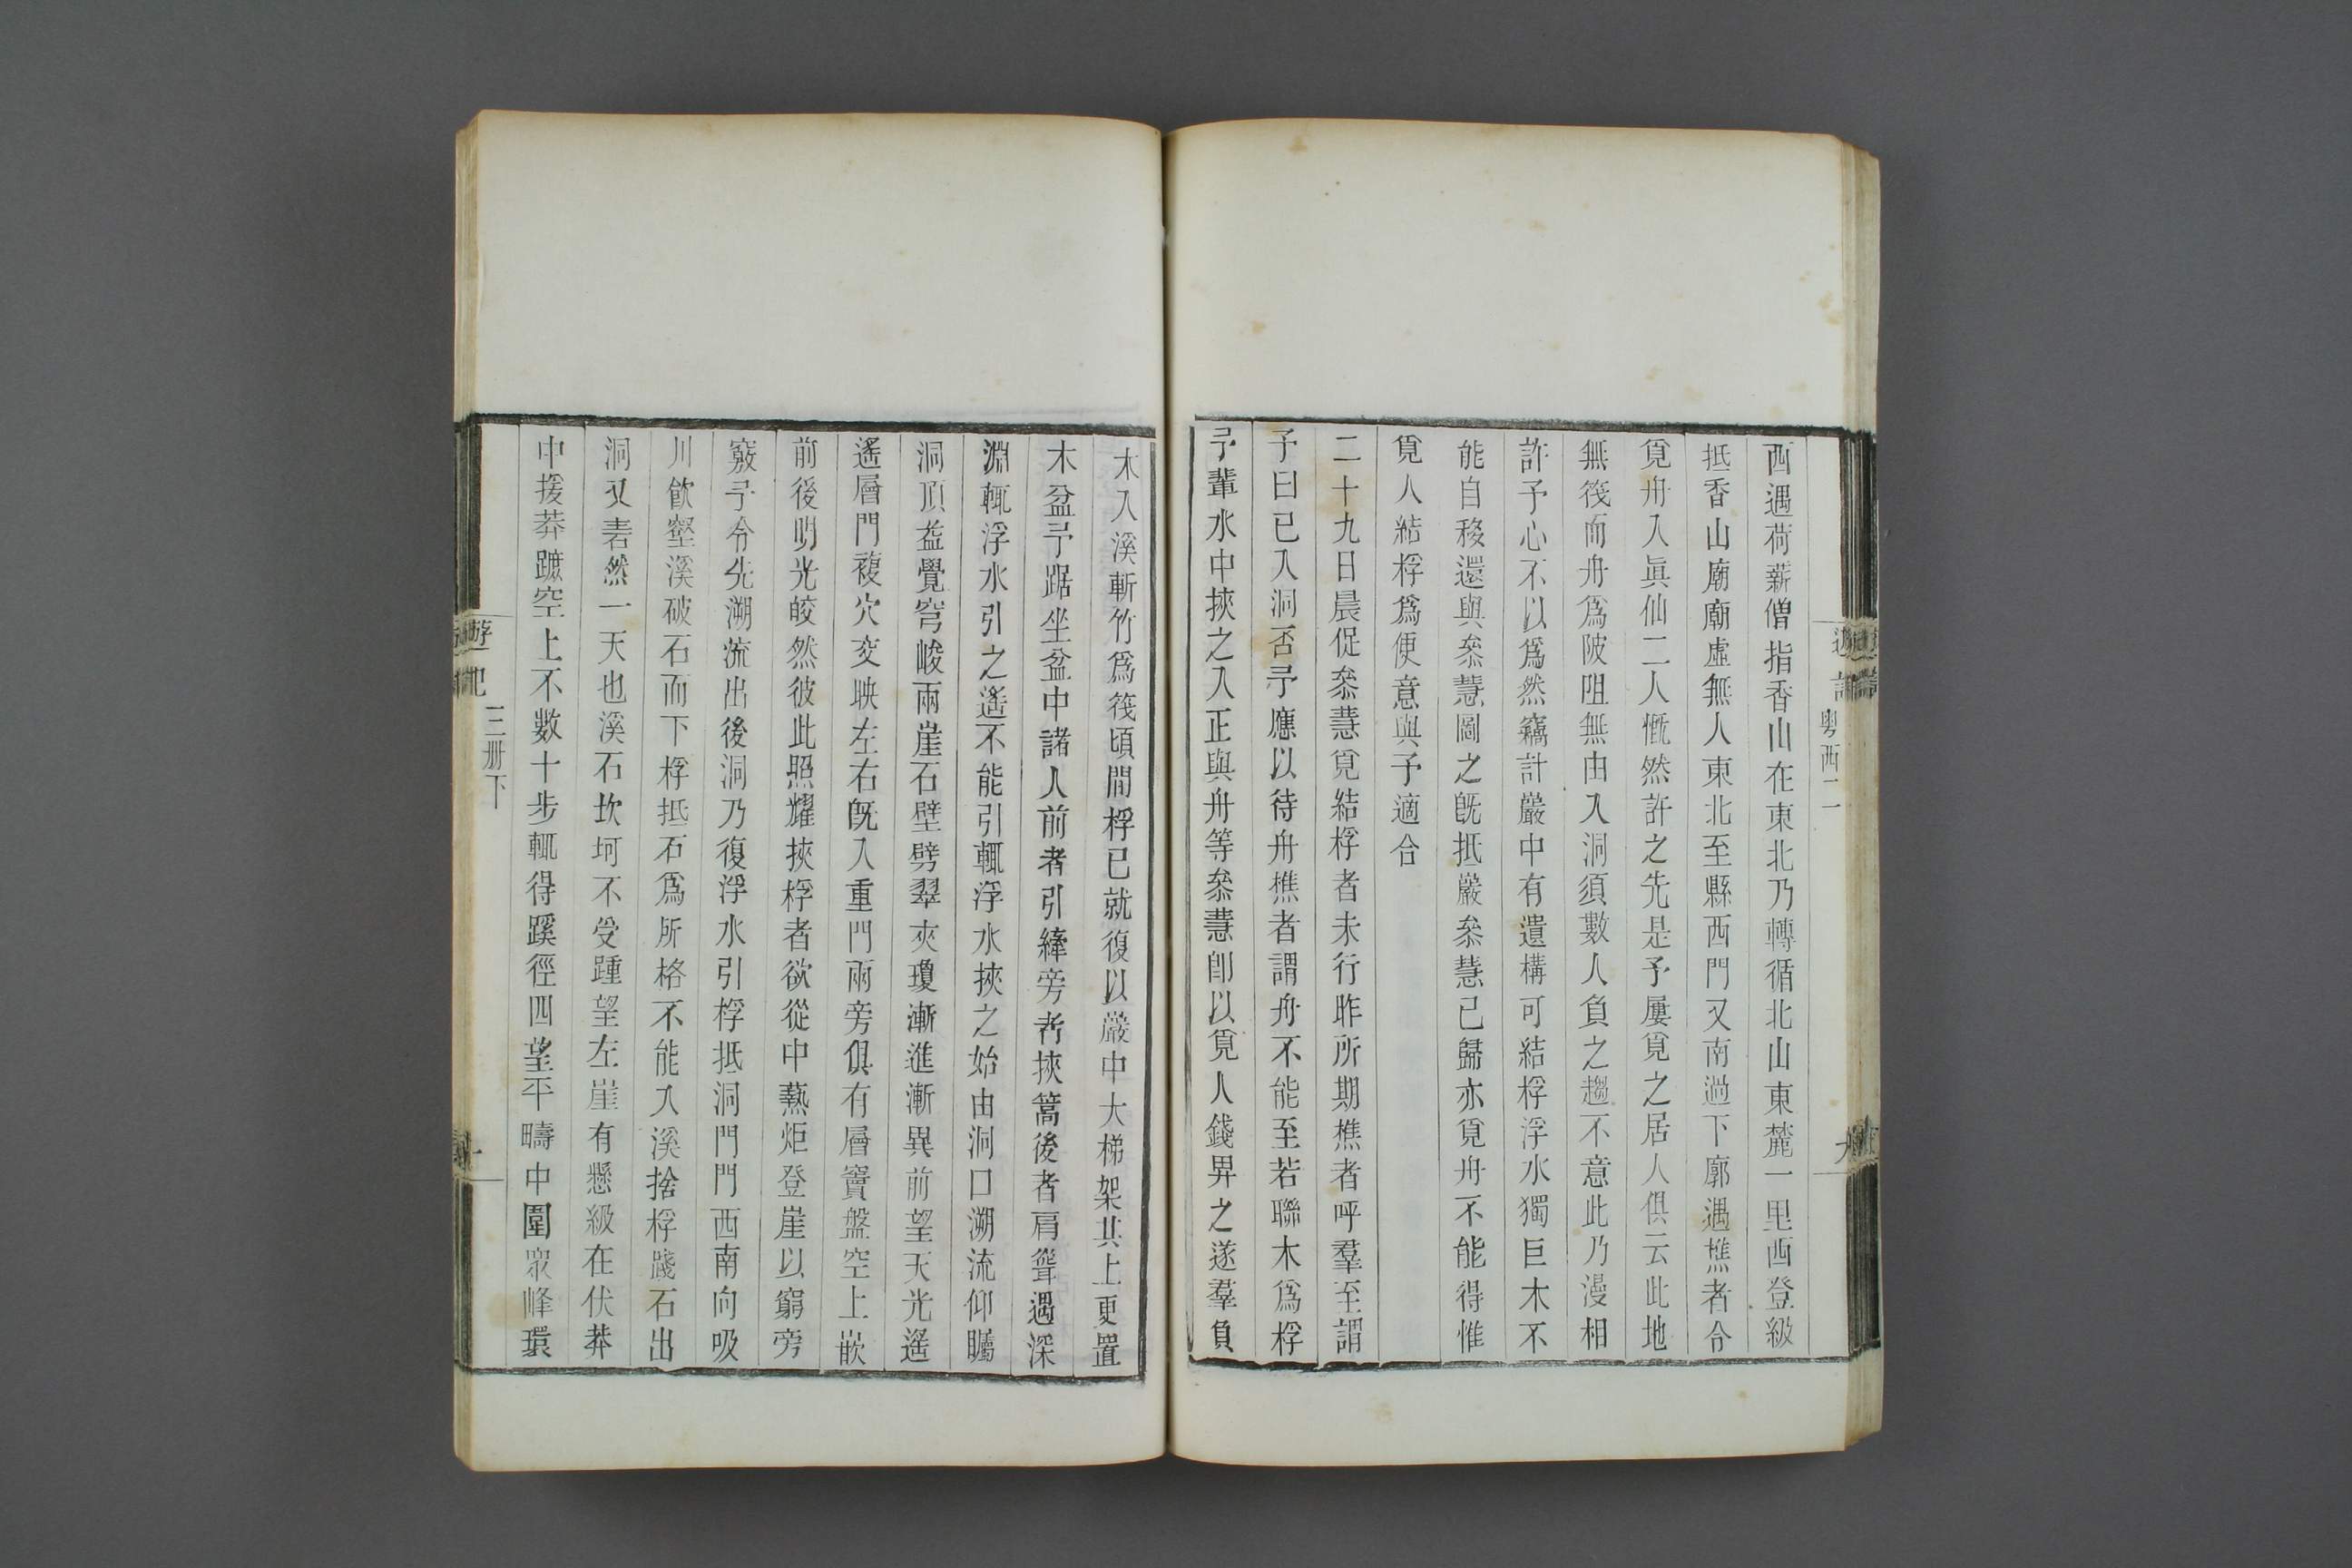 粤西二
西遇荷薪僧指香山在東北乃轉循北山東麓一里西登級
抵香山廟廟虛無人東北至縣西門又南過下廓遇樵者令
覓舟入眞仙二人慨然許之先是予屢覓之居人俱云此地
無筏而舟爲陂阻無由入洞須數人負之趨不意此乃漫相
許予心不以爲然竊計巖中有遺構可結桴浮水獨巨木不
能自移還與叅慧圖之旣抵巖叅慧已歸亦覓舟不能得惟
覓人結桴爲便意與予適合
二十九日晨促叅慧覓結桴者未行昨所期樵者呼羣至謂
予曰已入洞否予應以待舟樵者謂舟不能至若聯木爲桴
予輩水中挾之入正與舟等叅慧卽以覓人錢畀之遂羣負
木入溪斬竹爲筏頃間桴已就復以巖中大梯架其上更置
木盆予踞坐盆中諸人前者引綘旁者挾篙後者肩聳遇深
淵輒浮水引之遙不能引輒浮水挾之始由洞口溯流仰矚
洞頂益覺穹峻兩崖石壁劈翠夾瓊漸進漸異前望天光遙
遙層門複穴交映左右旣入重門兩旁俱有層竇盤空上嵌
前後明光皎然彼此照耀挾桴者欲從中爇炬登崖以窮旁
竅予令先溯流出後洞乃復浮水引桴抵洞門門西南向吸
川飮壑溪破石而下桴抵石爲所格不能入溪捨桴踐石出
洞又砉然一天也溪石坎坷不受踵望左崖有懸級在伏莽
中援莽蹠空上不數十步輒得蹊徑四望平疇中圍衆峰環
遊記
三册下